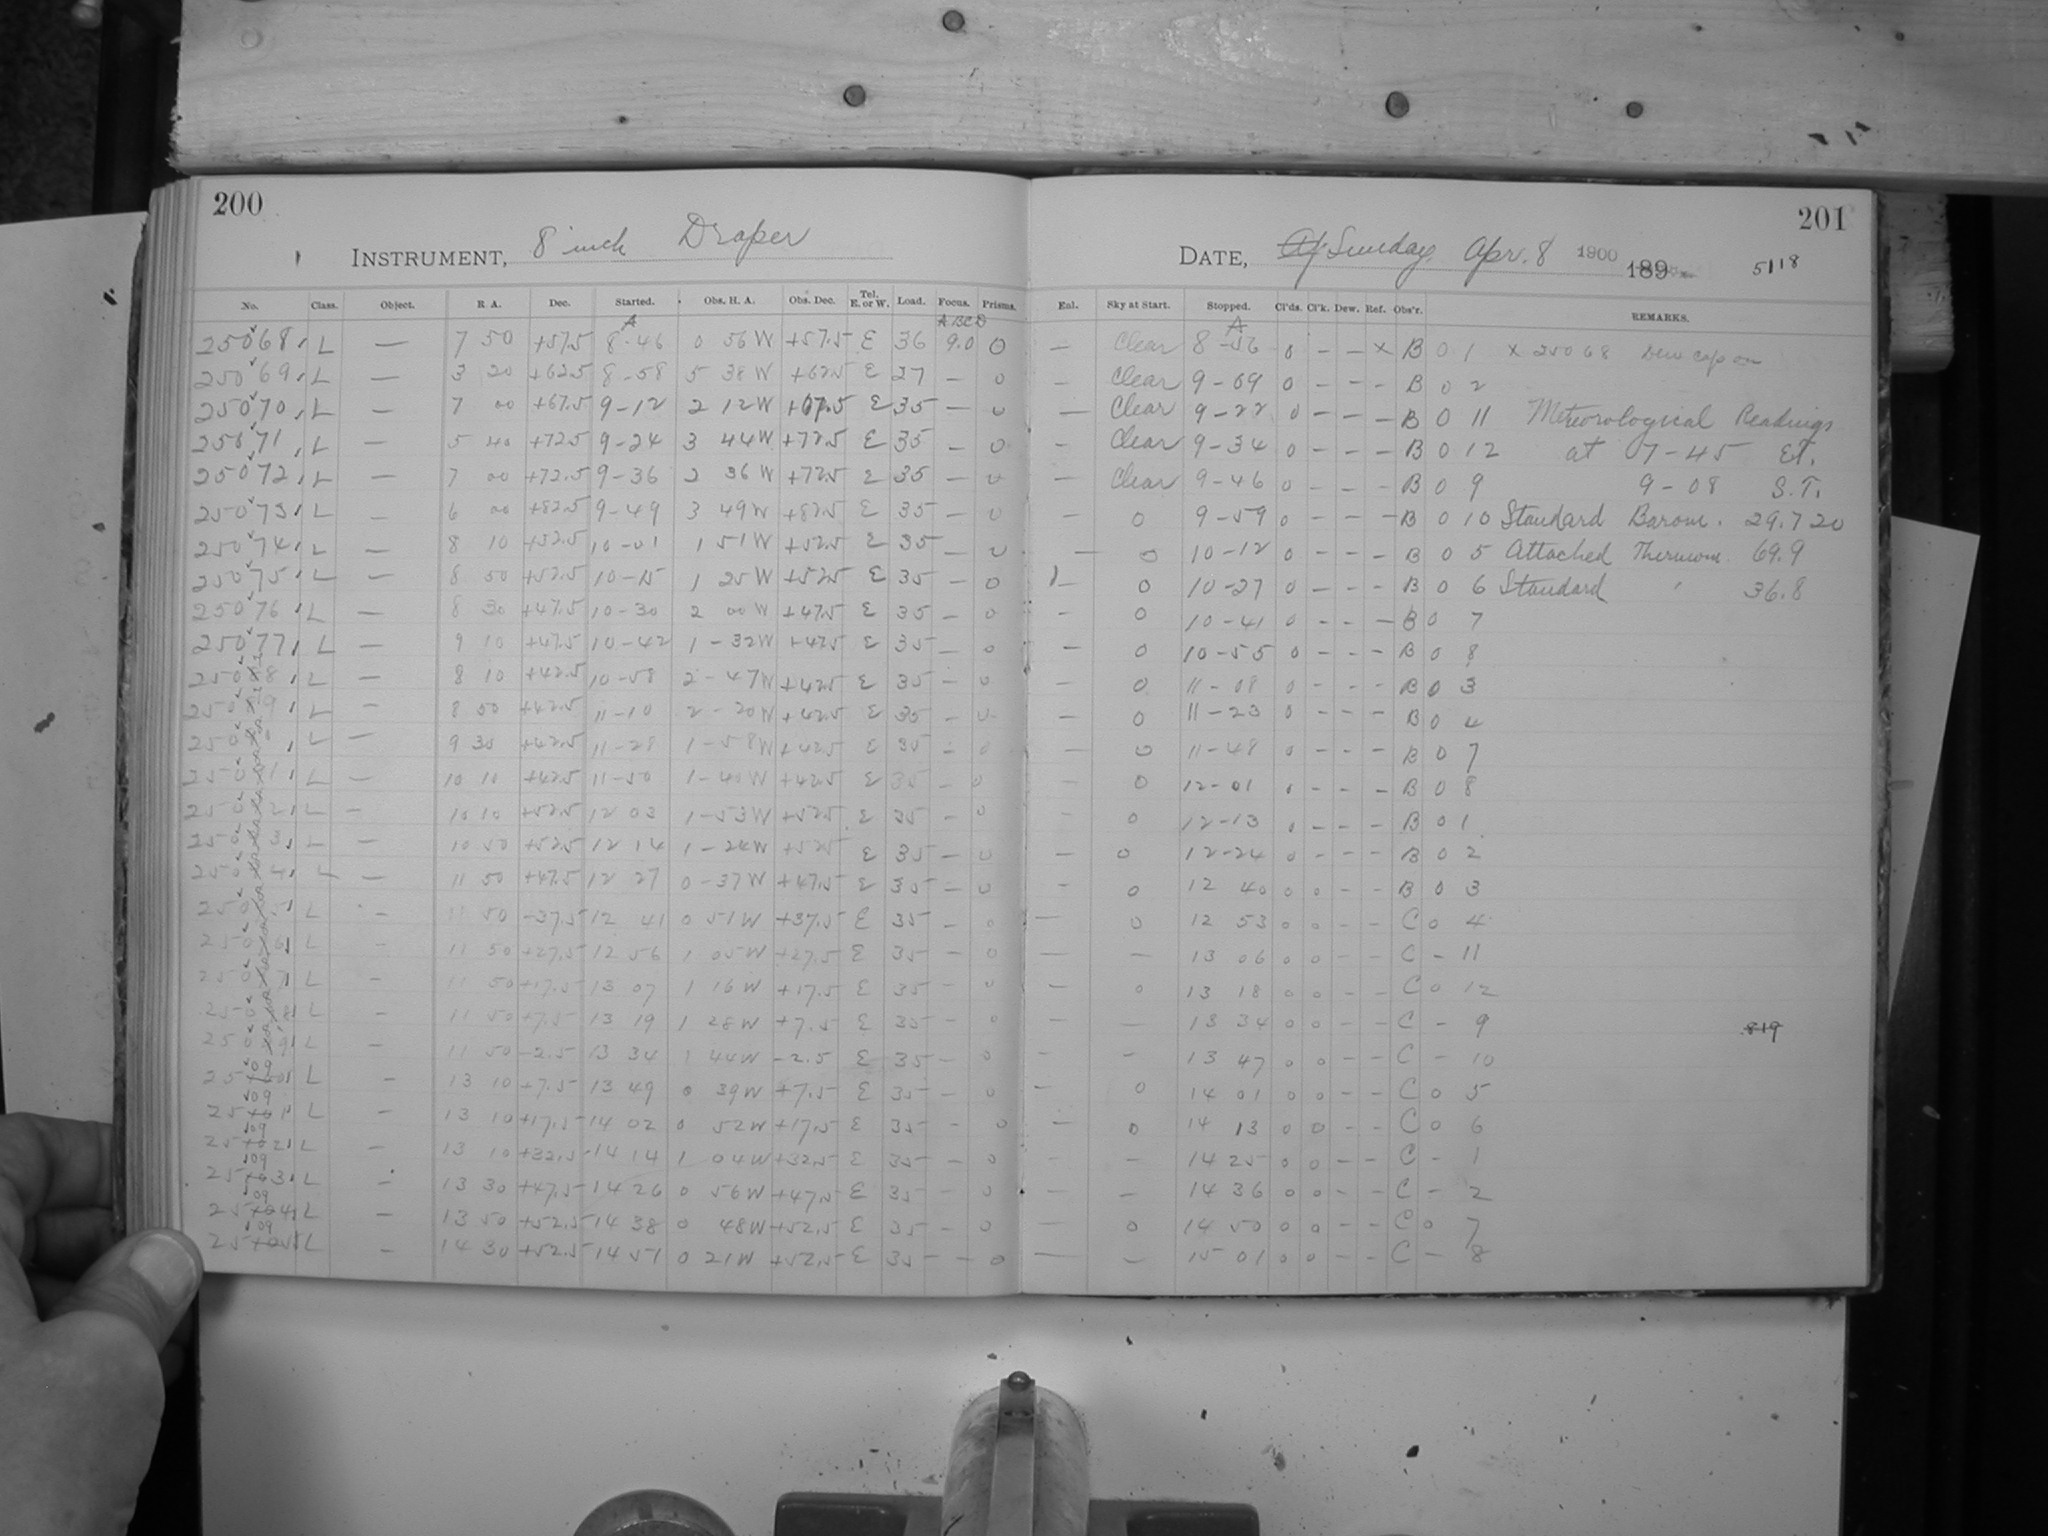 200
INSTRUMENT, 8 inch Draper
No. Class. Object. R. A. Dec. Started. Obs. H. A. Obs. Dec. Tel. E. or W. Load. Focus. Prisms.
A A B C D
25068 L — 7 50 +57.5 8-46 0 56 W +57.5 E 36 9.0 0
25069 L — 3 20 +62.5 8-58 5 38 W +62.5 E 27 — 0
25070 L — 7 00 +67.5 9-12 2 12 W +67.5 E 35 — 0
25071 L — 5 40 +72.5 9-24 3 44 W +72.5 E 35 — 0
25072 L — 7 00 +72.5 9-36 2 36 W +72.5 E 35 — 0
25073 L — 6 00 +82.5 9-49 3 49 W +82.5 E 35 — 0
25074 L — 8 10 +52.5 10-01 1 51 W +52.5 E 35 — 0
25075 L — 8 50 +52.5 10-15 1 25 W +52.5 E 35 — 0
25076 L — 8 30 +47.5 10-30 2 00 W +47.5 E 35 — 0
25077 L — 9 10 +47.5 10-42 1-32 W +47.5 E 35 — 0
L — 8 10 +42.5 10-58 2-47 W +42.5 E 35 — 0
L — 8 50 +42.5 11-10 2-20 W +42.5 E 35 — 0
L — 9 30 +42.5 11-28 1-58 W +42.5 E 35 — 0
L — 10 10 +42.5 11-50 1-40 W +42.5 E 35 — 0
L — 10 10 +52.5 12 03 1-53 W +52.5 E 35 — 0
L — 10 50 +52.5 12 14 1-24 W +52.5 E 35 — 0
L — 11 50 +47.5 12 27 0-37 W +47.5 E 35 — 0
L - 11 50 -37.5 12 41 0 51 W +37.5 E 35 — 0
L - 11 50 +27.5 12 56 1 05 W +27.5 E 35 — 0
L - 11 50 +17.5 13 07 1 16 W +17.5 E 35 — 0
L - 11 50 +7.5 13 19 1 28 W +7.5 E 35 — 0
L - 11 50 -2.5 13 34 1 44 W -2.5 E 35 — 0
L - 13 10 +7.5 13 49 0 39 W +7.5 E 35 — 0
L - 13 10 +17.5 14 02 0 52 W +17.5 E 35 - 0
L - 13 10 +32.5 14 14 1 04 W +32.5 E 35 — 0
L - 13 30 +47.5 14 26 0 56 W +47.5 E 35 - 0
L - 13 50 +52.5 14 38 0 48 W +52.5 E 35 - 0
L - 14 30 +52.5 14 51 0 21 W +52.5 E 35 - — 0
201
DATE, Sunday Apr. 8 1900 189 5118
Enl. Sky at Start. Stopped. Cl'ds. Cl'k. Dew. Ref. Obs'r. REMARKS.
A
— Clear 8-56 0 - - x B 0 1 x 25068 Dew cap on
— Clear 9-09 0 - - - B 0 2
— Clear 9-22 0 - - - B 0 11 Meteorological Readings
— Clear 9-34 0 - - - B 0 12 at 7-45 E.T.
— Clear 9-46 0 - - - B 0 9 9-08 S.T.
— 0 9-59 0 - - - B 0 10 Standard Barom. 29.720
— 0 10-12 0 - - - B 0 5 Attached Thermom. 69.9
— 0 10-27 0 - - - B 0 6 Standard " 36.8
— 0 10-41 0 - - - B 0 7
— 0 10-55 0 - - - B 0 8
— 0 11-08 0 - - - B 0 3
— 0 11-23 0 - - - B 0 4
— 0 11-48 0 - - - B 0 7
— 0 12-01 0 - - - B 0 8
— 0 12-13 0 - - - B 0 1
— 0 12-24 0 - - - B 0 2
— 0 12 40 0 0 - - B 0 3
— 0 12 53 0 0 - - C 0 4
— — 13 06 0 0 - - C - 11
— 0 13 18 0 0 - - C 0 12
— — 13 34 0 0 - - C - 9 819
— - 13 47 0 0 - - C - 10
— 0 14 01 0 0 - - C 0 5
— 0 14 13 0 0 - - C 0 6
— - 14 25 0 0 - - C - 1
— - 14 36 0 0 - - C - 2
— 0 14 50 0 0 - - C 0 7
— — 15 01 0 0 - - C - 8